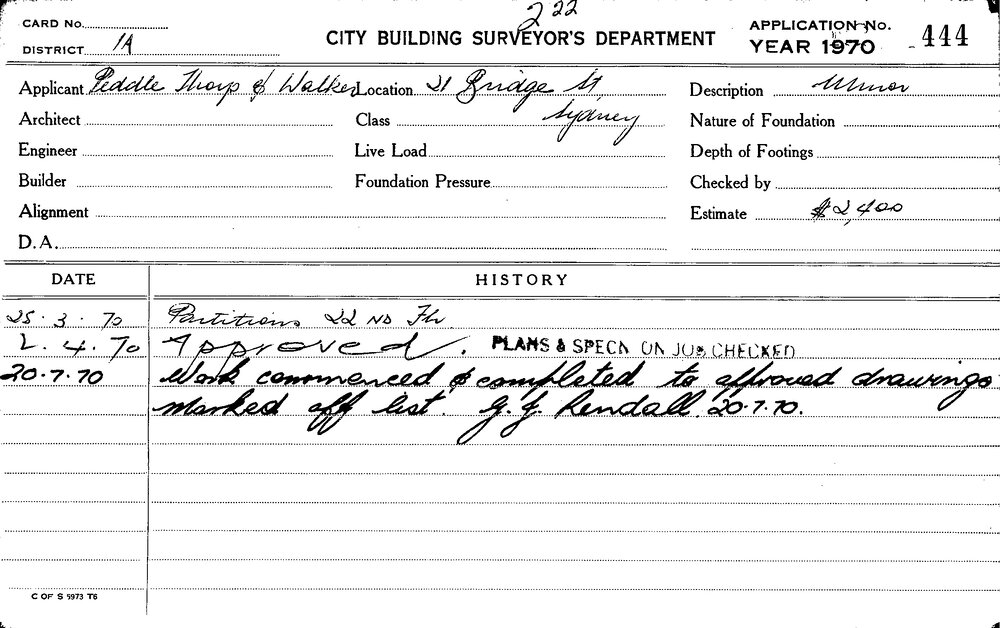 222
CARD NO.
APPLICATION NO.
DISTRICT 1A
CITY BUILDING SURVEYOR'S DEPARTMENT
YEAR 1970 - 444
Applicant Peddle Thorp & Walker Location 21 Bridge St Description Minor
Architect Class Sydney Nature of Foundation
Engineer Live Load Depth of Footings
Builder Foundation Pressure Checked by
Alignment Estimate $2,400
D.A.
DATE HISTORY
25.3.70 Partitions 22ND Flr
2.4.70 Approved. PLANS & SPECN ON JOB CHECKED
20.7.70 Work commenced & completed to approved drawings
marked off list. G.J. Rendall 20.7.70.
C OF S 5973 T6